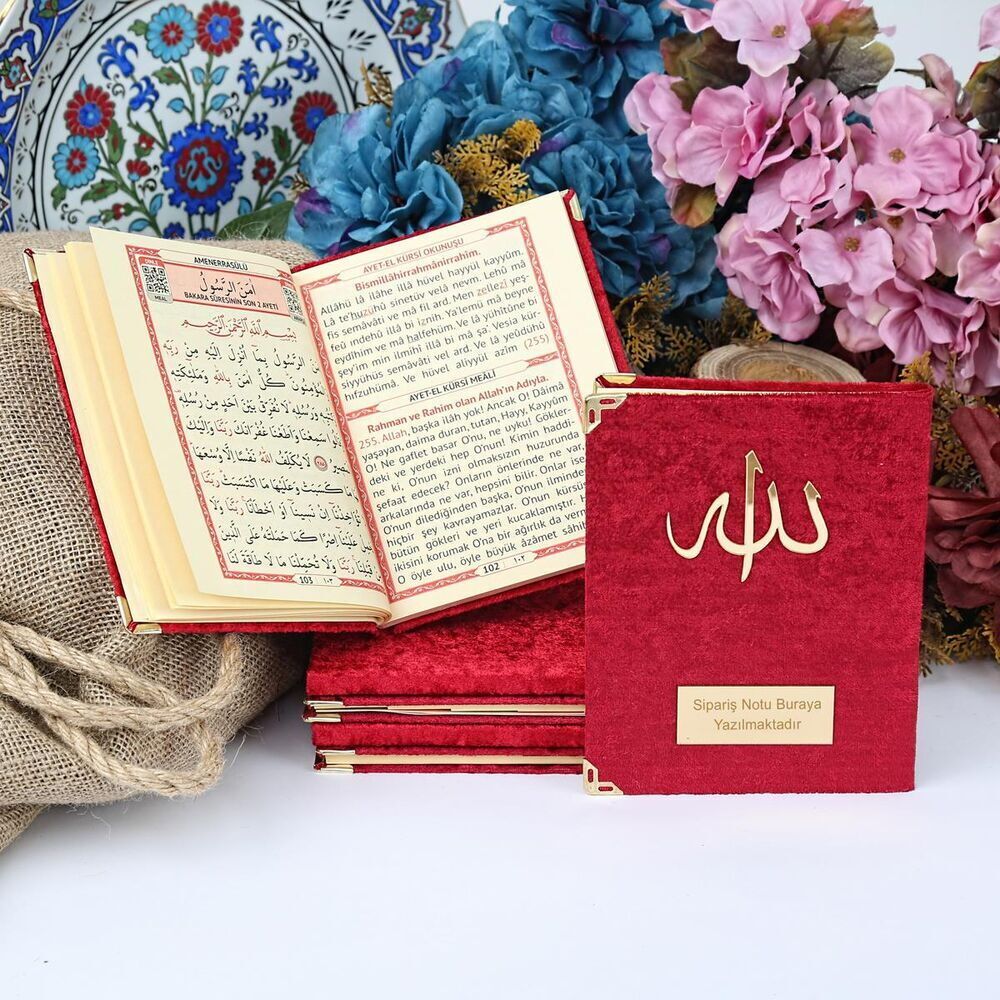 DİNLE
AMENERRASÛLÜ
اٰمَنَ الرَّسُولُ
MEAL
BAKARA SÛRESİNİN SON 2 AYETİ
بِسْمِ اللّٰهِ الرَّحْمٰنِ الرَّحِيمِ
الرَّسُولُ بِمَا اُنْزِلَ اِلَيْهِ مِنْ رَبِّهِ
كُلٌّ اٰمَنَ بِاللّٰهِ وَمَلٰٓئِكَتِهِ
وَرُسُلِهِ لَا نُفَرِّقُ بَيْنَ اَحَدٍ مِنْ رُسُلِهِ
سَمِعْنَا وَاَطَعْنَا غُفْرَانَكَ رَبَّنَا وَاِلَيْكَ
لَا يُكَلِّفُ اللّٰهُ نَفْسًا اِلَّا وُسْعَهَا
مَا كَسَبَتْ وَعَلَيْهَا مَا اكْتَسَبَتْ رَبَّنَا
تُؤَاخِذْنَا اِنْ نَسِينَا اَوْ اَخْطَأْنَا رَبَّنَا وَلَا
عَلَيْنَا اِصْرًا كَمَا حَمَلْتَهُ عَلَى الَّذِينَ
قَبْلِنَا رَبَّنَا وَلَا تُحَمِّلْنَا مَا لَا طَاقَةَ لَنَا
103 ١٠٣
AYET-EL KÜRSİ OKUNUŞU
Bismillâhirrahmânirrahim.
Allâhü lâ ilâhe illâ hüvel hayyül kayyûm.
Lâ te'huzuhû sinetüv velâ nevm. Lehû mâ
fis semâvâti ve mâ fil ard. Men zellezî yeş-
feu indehû illâ bi iznih. Ya'lemü mâ beyne
eydîhim ve mâ halfehüm. Ve lâ yühîtûne bi
şey'im min ilmihî illâ bi mâ şa'. Vesia kür-
siyyühüs semâvâti vel ard. Ve lâ yeûdühû
hıfzuhümâ. Ve hüvel aliyyül azîm (255)
AYET-EL KÜRSİ MEÂLİ
Rahman ve Rahim olan Allah'ın Adıyla.
255. Allah, başka ilâh yok! Ancak O! Dâimâ
yaşayan, daima duran, tutan, Hayy, Kayyûm
O! Ne gaflet basar O'nu, ne uyku! Gökler-
deki ve yerdeki hep O'nun! Kimin haddi-
ne ki, O'nun izni olmaksızın huzurunda
şefaat edecek? Onların önlerinde ne var,
arkalarında ne var, hepsini bilir. Onlar ise
O'nun dilediğinden başka, O'nun ilminden
hiçbir şey kavrayamazlar. O'nun kürsüsü
bütün gökleri ve yeri kucaklamıştır.
ikisini korumak O'na bir ağırlık da vermez
O öyle ulu, öyle büyük âzamet sâhibi
102 ١٠٢
الله
Sipariş Notu Buraya
Yazılmaktadır